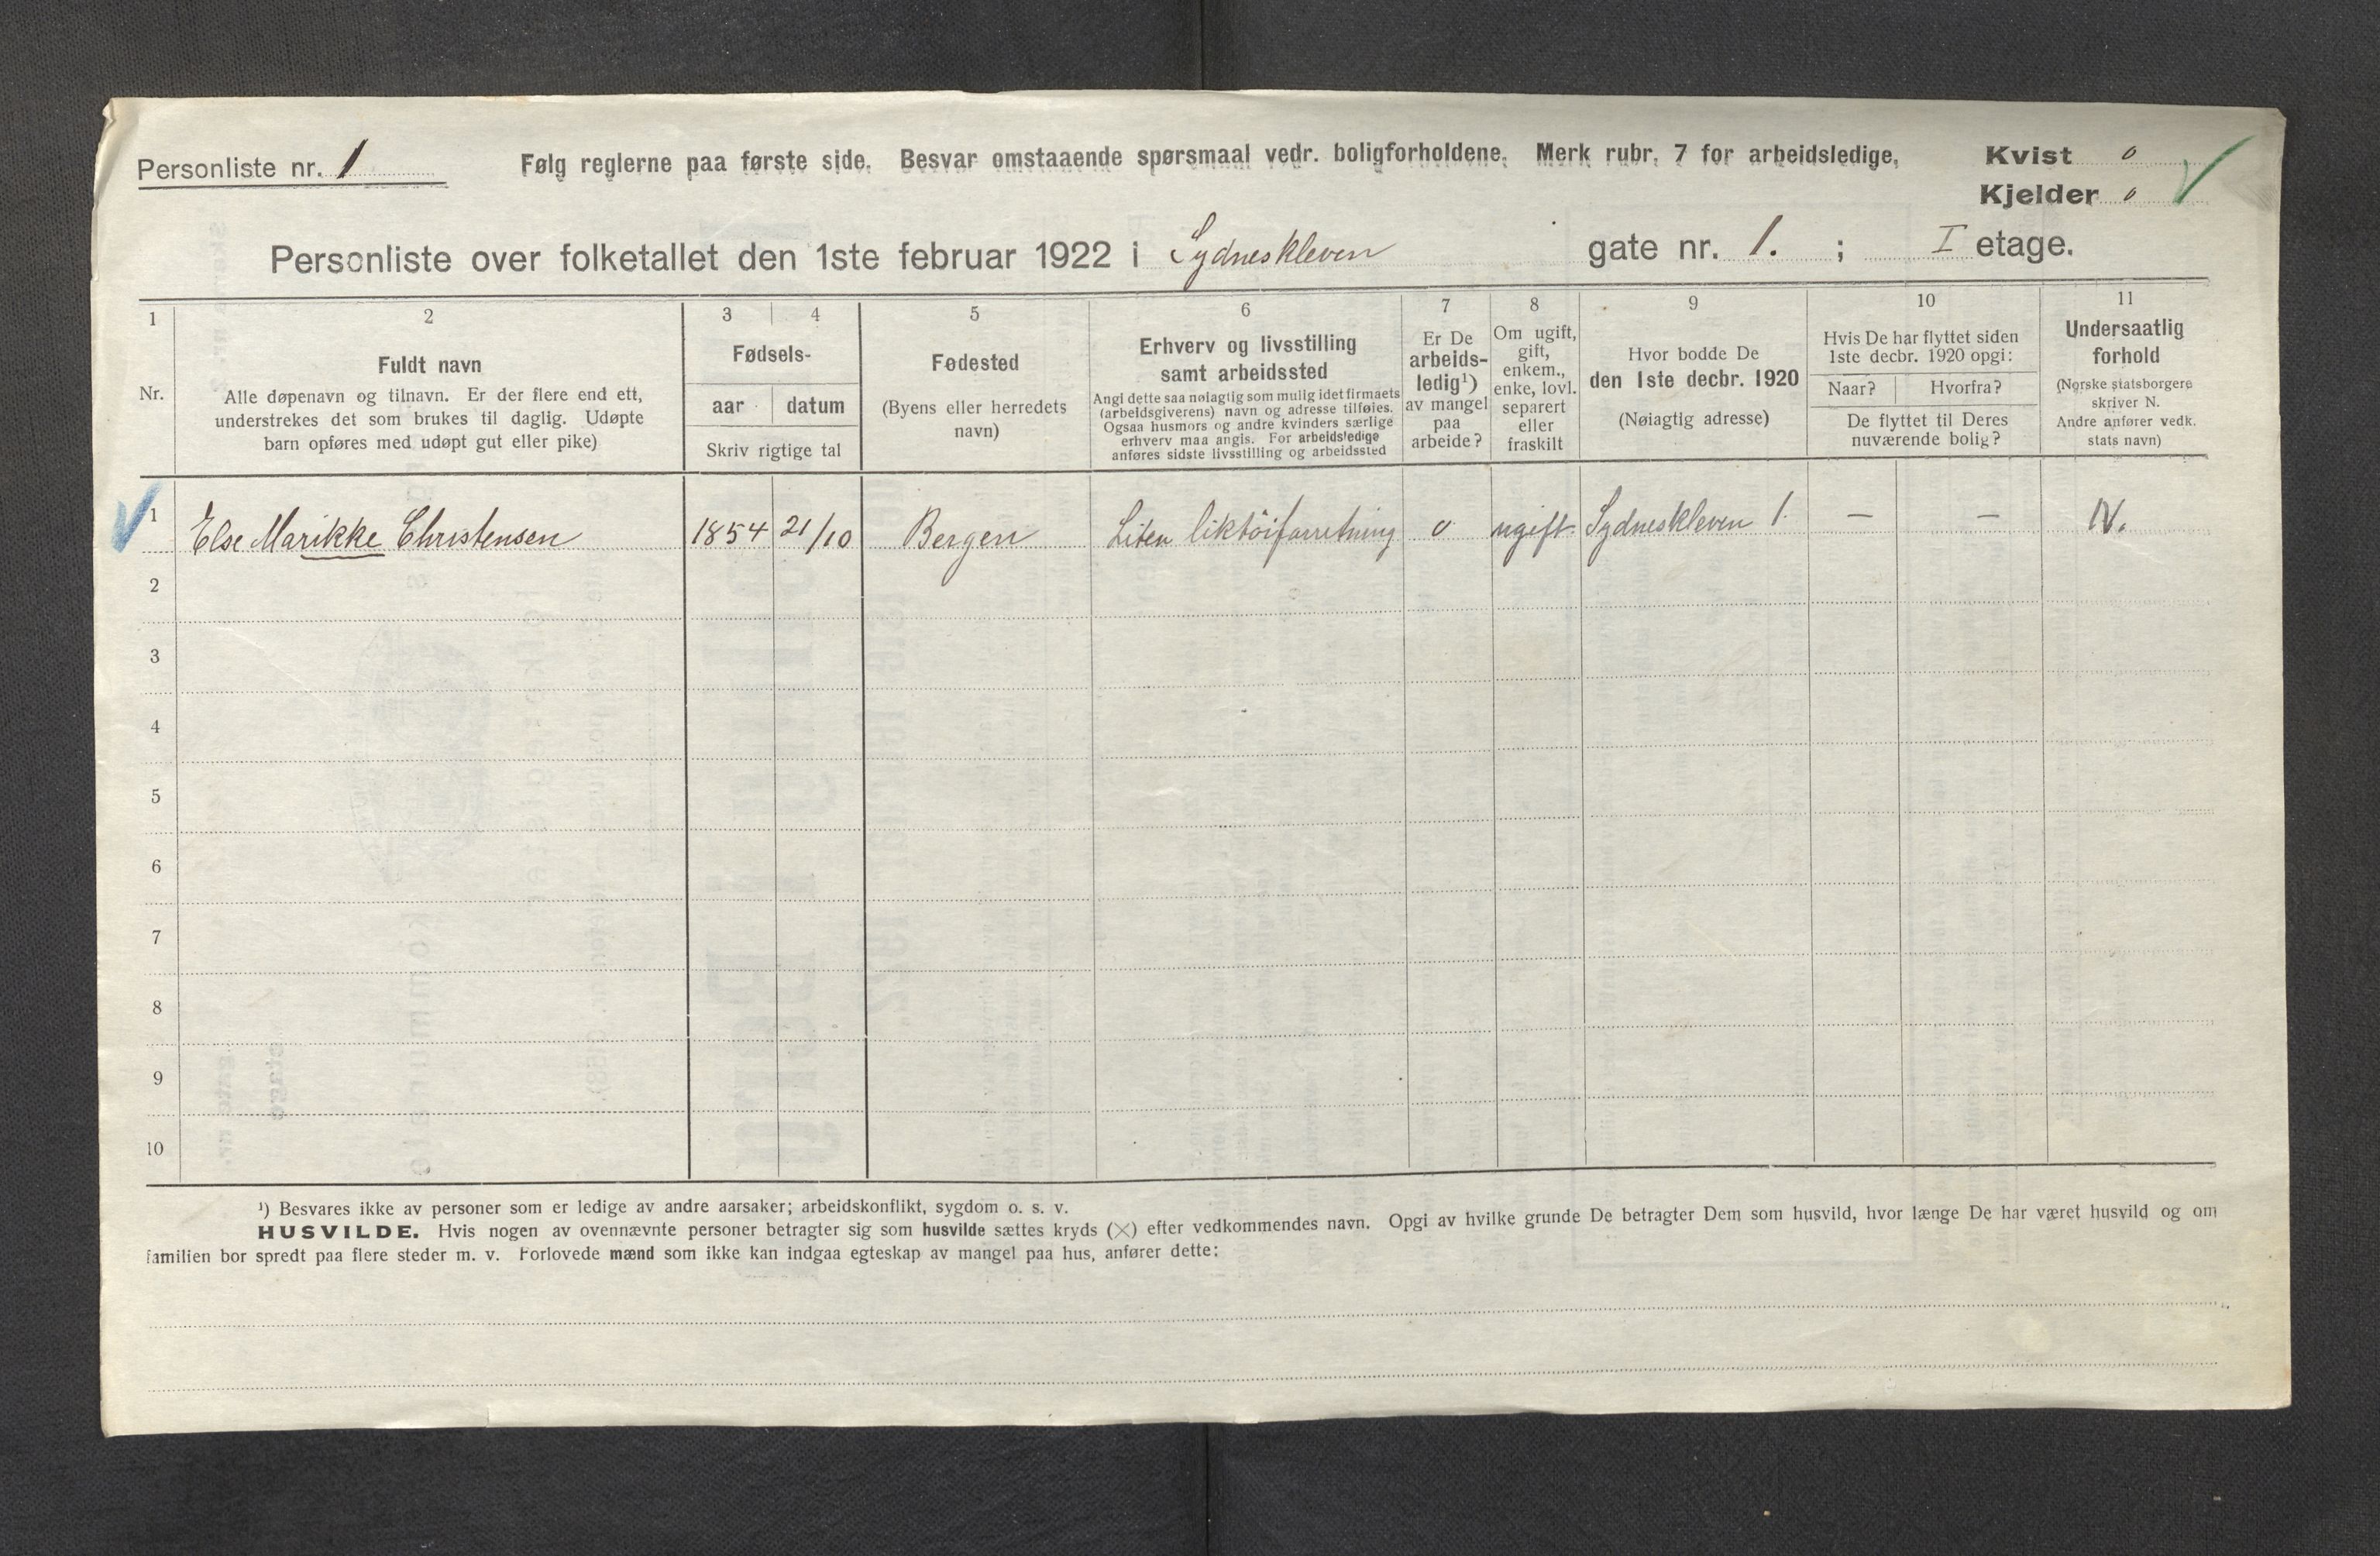 Personliste nr. 1
Følg reglerne paa første side. Besvar omstaaende spørsmaal vedr. boligforholdene. Merk rubr. 7 for arbeidsledige.
Kvist 0
Kjelder 0
Personliste over folketallet den 1ste februar 1922 i Sydneskleven gate nr. 1. ; I etage.
1 2 3 4 5 6 7 8 9 10 11
Nr.
Fuldt navn
Alle døpenavn og tilnavn. Er der flere end ett,
understrekes det som brukes til daglig. Udøpte
barn opføres med udøpt gut eller pike)
Fødsels-
aar datum
Skriv rigtige tal
Fødested
(Byens eller herredets
navn)
Erhverv og livsstilling
samt arbeidssted
Angi dette saa nøiagtig som mulig idet firmaets
(arbeidsgiverens) navn og adresse tilføies.
Ogsaa husmors og andre kvinders særlige
erhverv maa angis. For arbeidsledige
anføres sidste livsstilling og arbeidssted
Er De
arbeids-
ledig¹)
av mangel
paa
arbeide?
Om ugift,
gift,
enkem.,
enke, lovl.
separert
eller
fraskilt
Hvor bodde De
den 1ste decbr. 1920
(Nøiagtig adresse)
Hvis De har flyttet siden
1ste decbr. 1920 opgi:
Naar? Hvorfra?
De flyttet til Deres
nuværende bolig?
Undersaatlig
forhold
(Norske statsborgere
skriver N.
Andre anfører vedk.
stats navn)
1 Else Marikke Christensen 1854 21/10 Bergen Liten liktöiforretning 0 ugift Sydneskleven 1. — — N.
2
3
4
5
6
7
8
9
10
¹) Besvares ikke av personer som er ledige av andre aarsaker; arbeidskonflikt, sygdom o. s. v.
HUSVILDE. Hvis nogen av ovennævnte personer betragter sig som husvilde sættes kryds (×) efter vedkommendes navn. Opgi av hvilke grunde De betragter Dem som husvild, hvor længe De har været husvild og om
familien bor spredt paa flere steder m. v. Forlovede mænd som ikke kan indgaa egteskap av mangel paa hus, anfører dette: